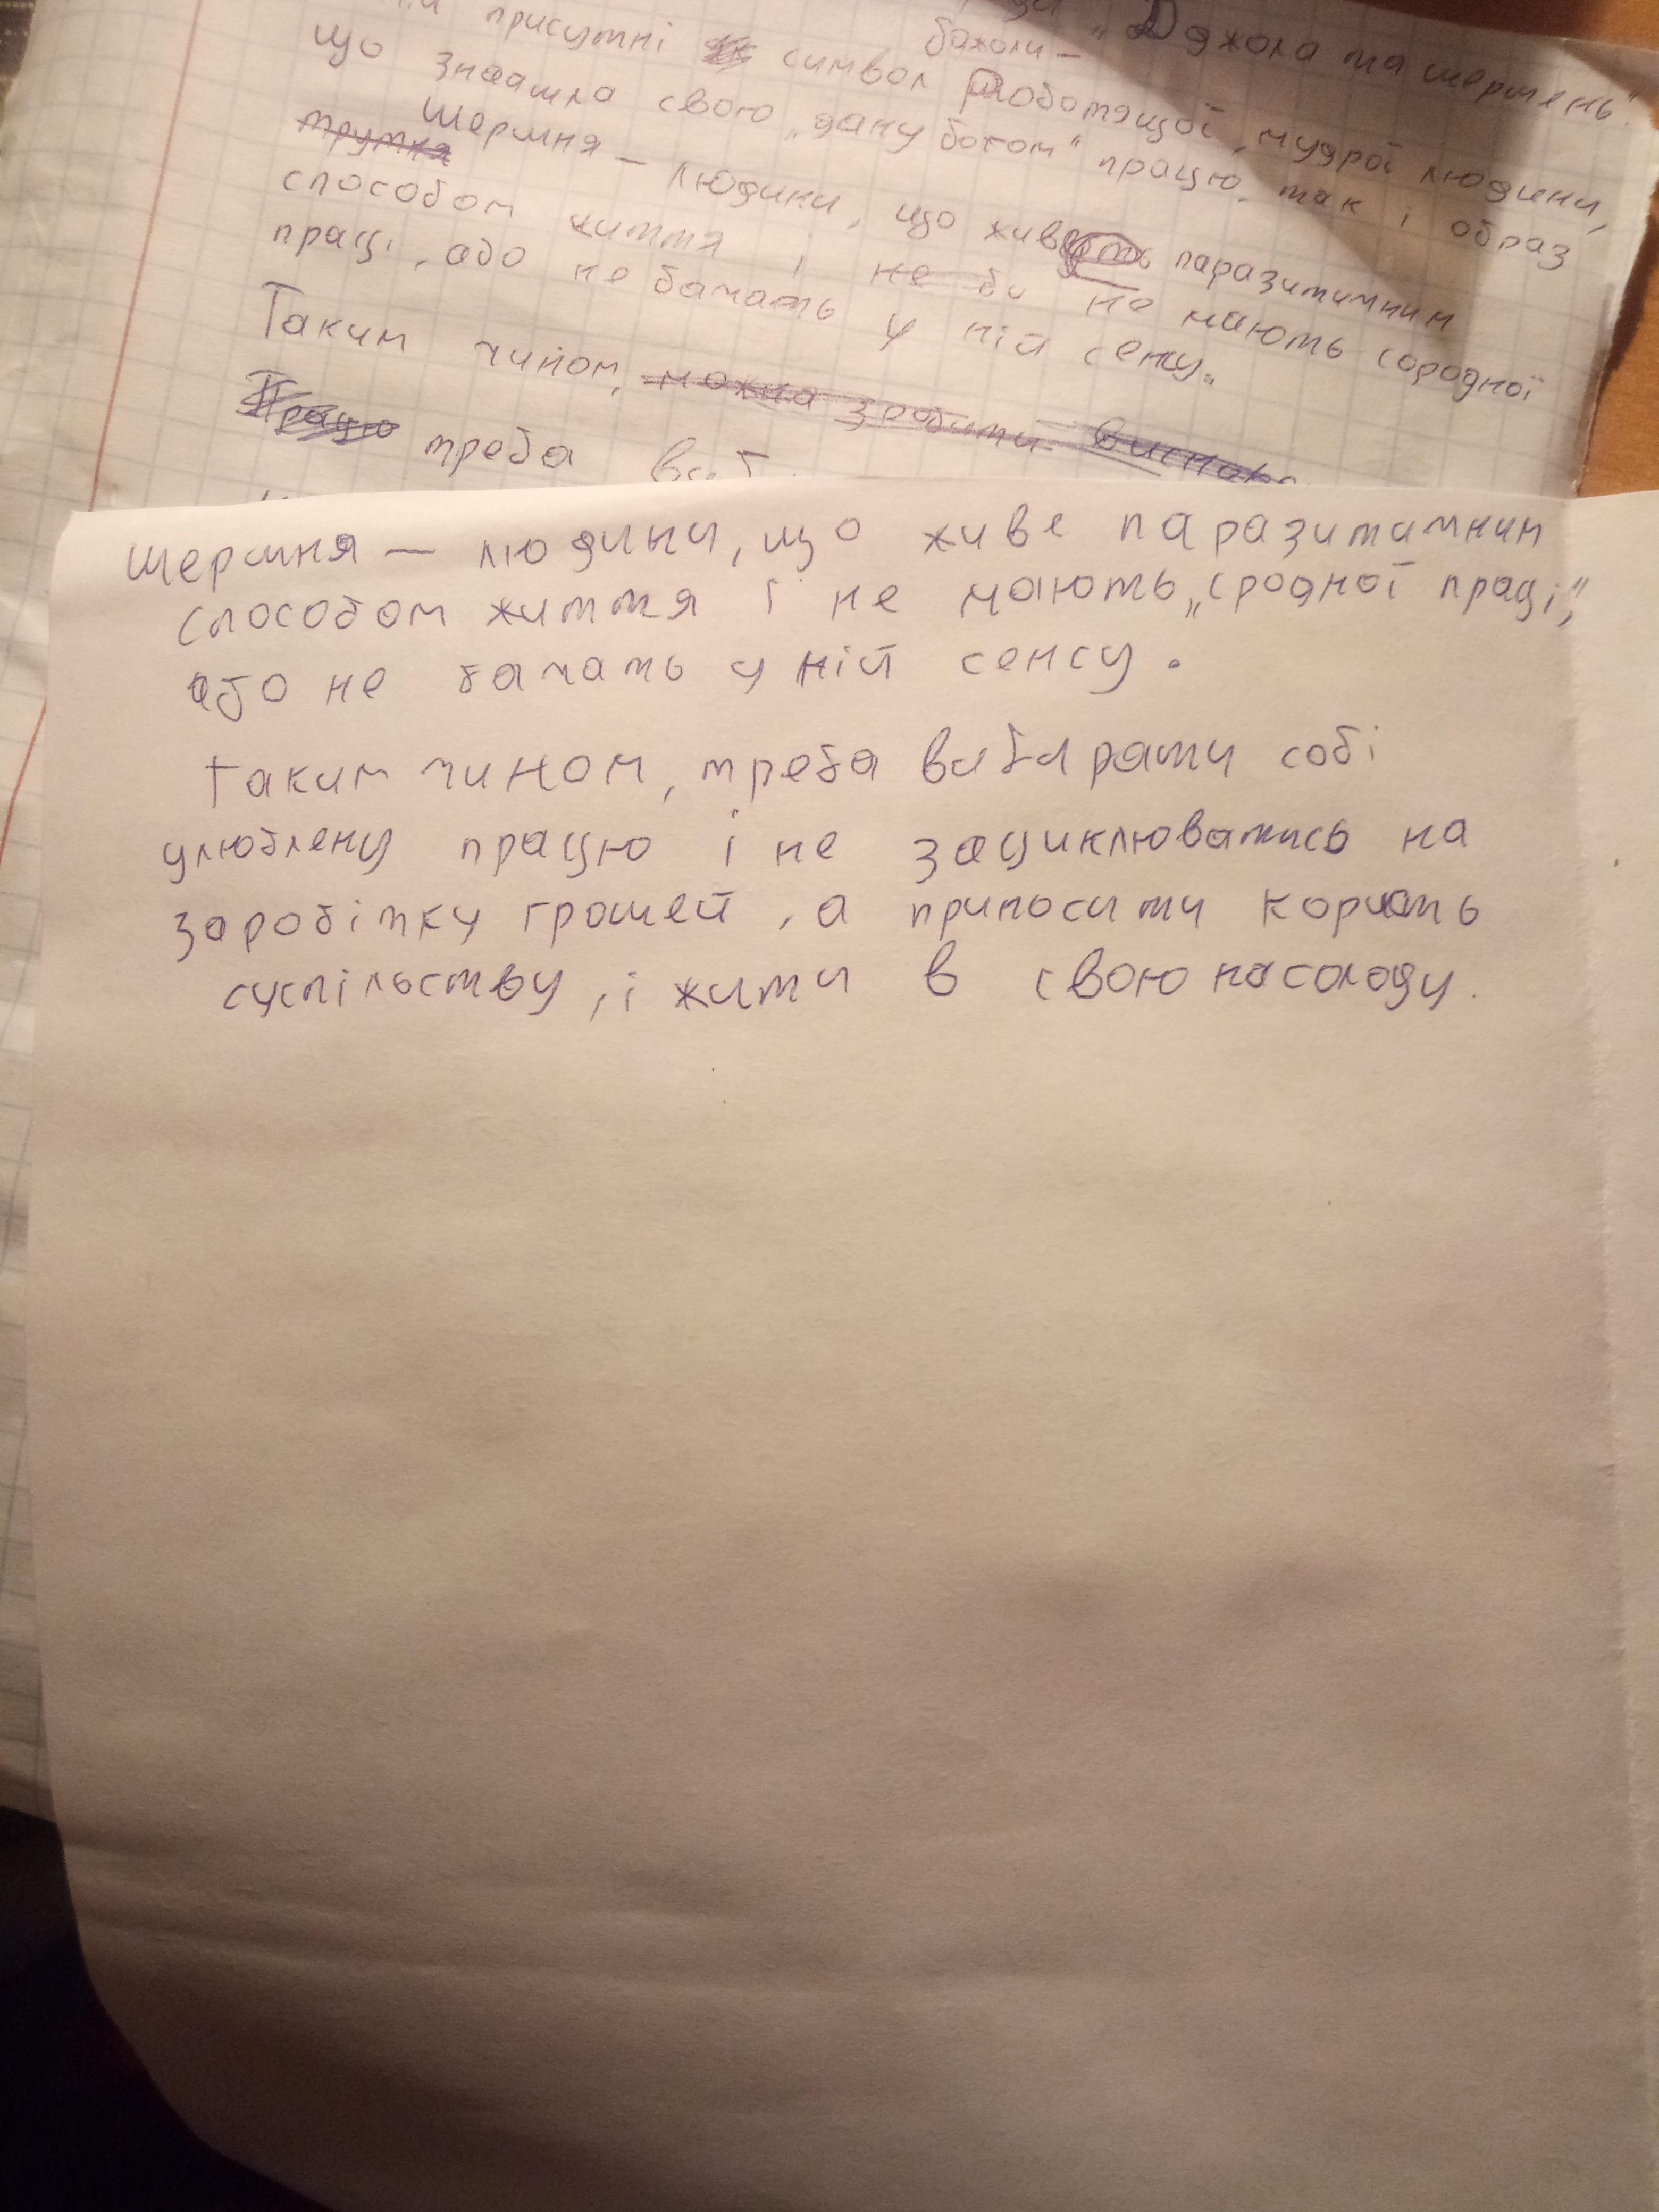 присутні символ роботящої, мудрої людини,
бджоли — "Бджола та шершень".
що знайшла свою „дану богом" працю, так і образ
трутня шершня — людини, що живе паразитичним
способом життя і не ба не мають сородної
праці, або не бачать у ній сенсу.
Таким чином, можна зробити виснов
Працю треба
шершня — людини, що живе паразитичним
способом життя і не мають „сродної праці",
або не бачать у ній сенсу.
Таким чином, треба вибирати собі
улюблену працю і не зациклюватись на
заробітку грошей, а приносити користь
суспільству, і жити в свою насолоду.